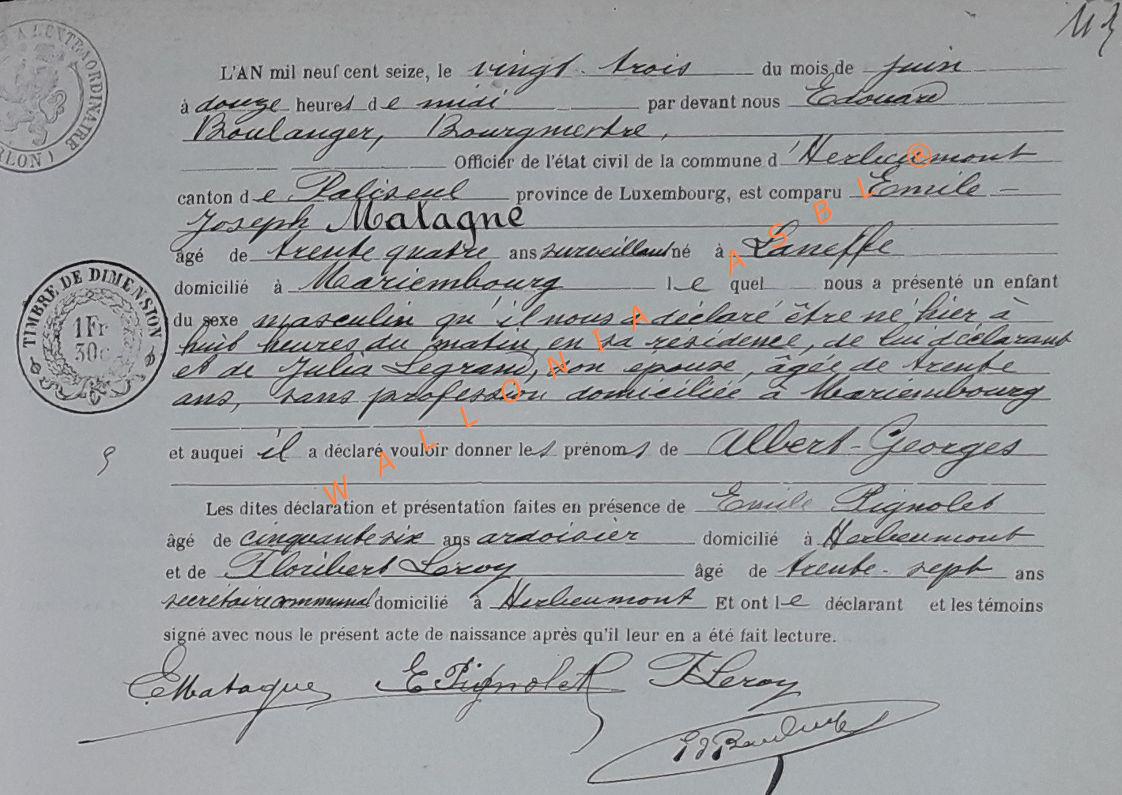 113
L'AN mil neuf cent seize, le vingt trois du mois de juin
à douze heures de midi par devant nous Edouard
Boulanger, Bourgmestre,
Officier de l'état civil de la commune d'Herbeumont
canton de Paliseul province de Luxembourg, est comparu Emile
Joseph Matagne
âgé de trente quatre ans surveillant né à Laneffe
domicilié à Mariembourg le quel nous a présenté un enfant
du sexe masculin qu'il nous a déclaré être né hier à
huit heures du matin, en sa résidence, de lui déclarant
et de Julia Legrand, son épouse, âgée de trente
ans, sans profession domiciliée à Mariembourg
et auquel il a déclaré vouloir donner les prénoms de Albert-Georges
Les dites déclaration et présentation faites en présence de Emile Pignolet
âgé de cinquante six ans ardoisier domicilié à Herbeumont
et de Floribert Leroy âgé de trente-sept ans
secrétaire communal domicilié à Herbeumont Et ont le déclarant et les témoins
signé avec nous le présent acte de naissance après qu'il leur en a été fait lecture.
EMatagne E Pignolet FLeroy
TIMBRE DE DIMENSION
1Fr
30c
WALLONIA ASBL ©